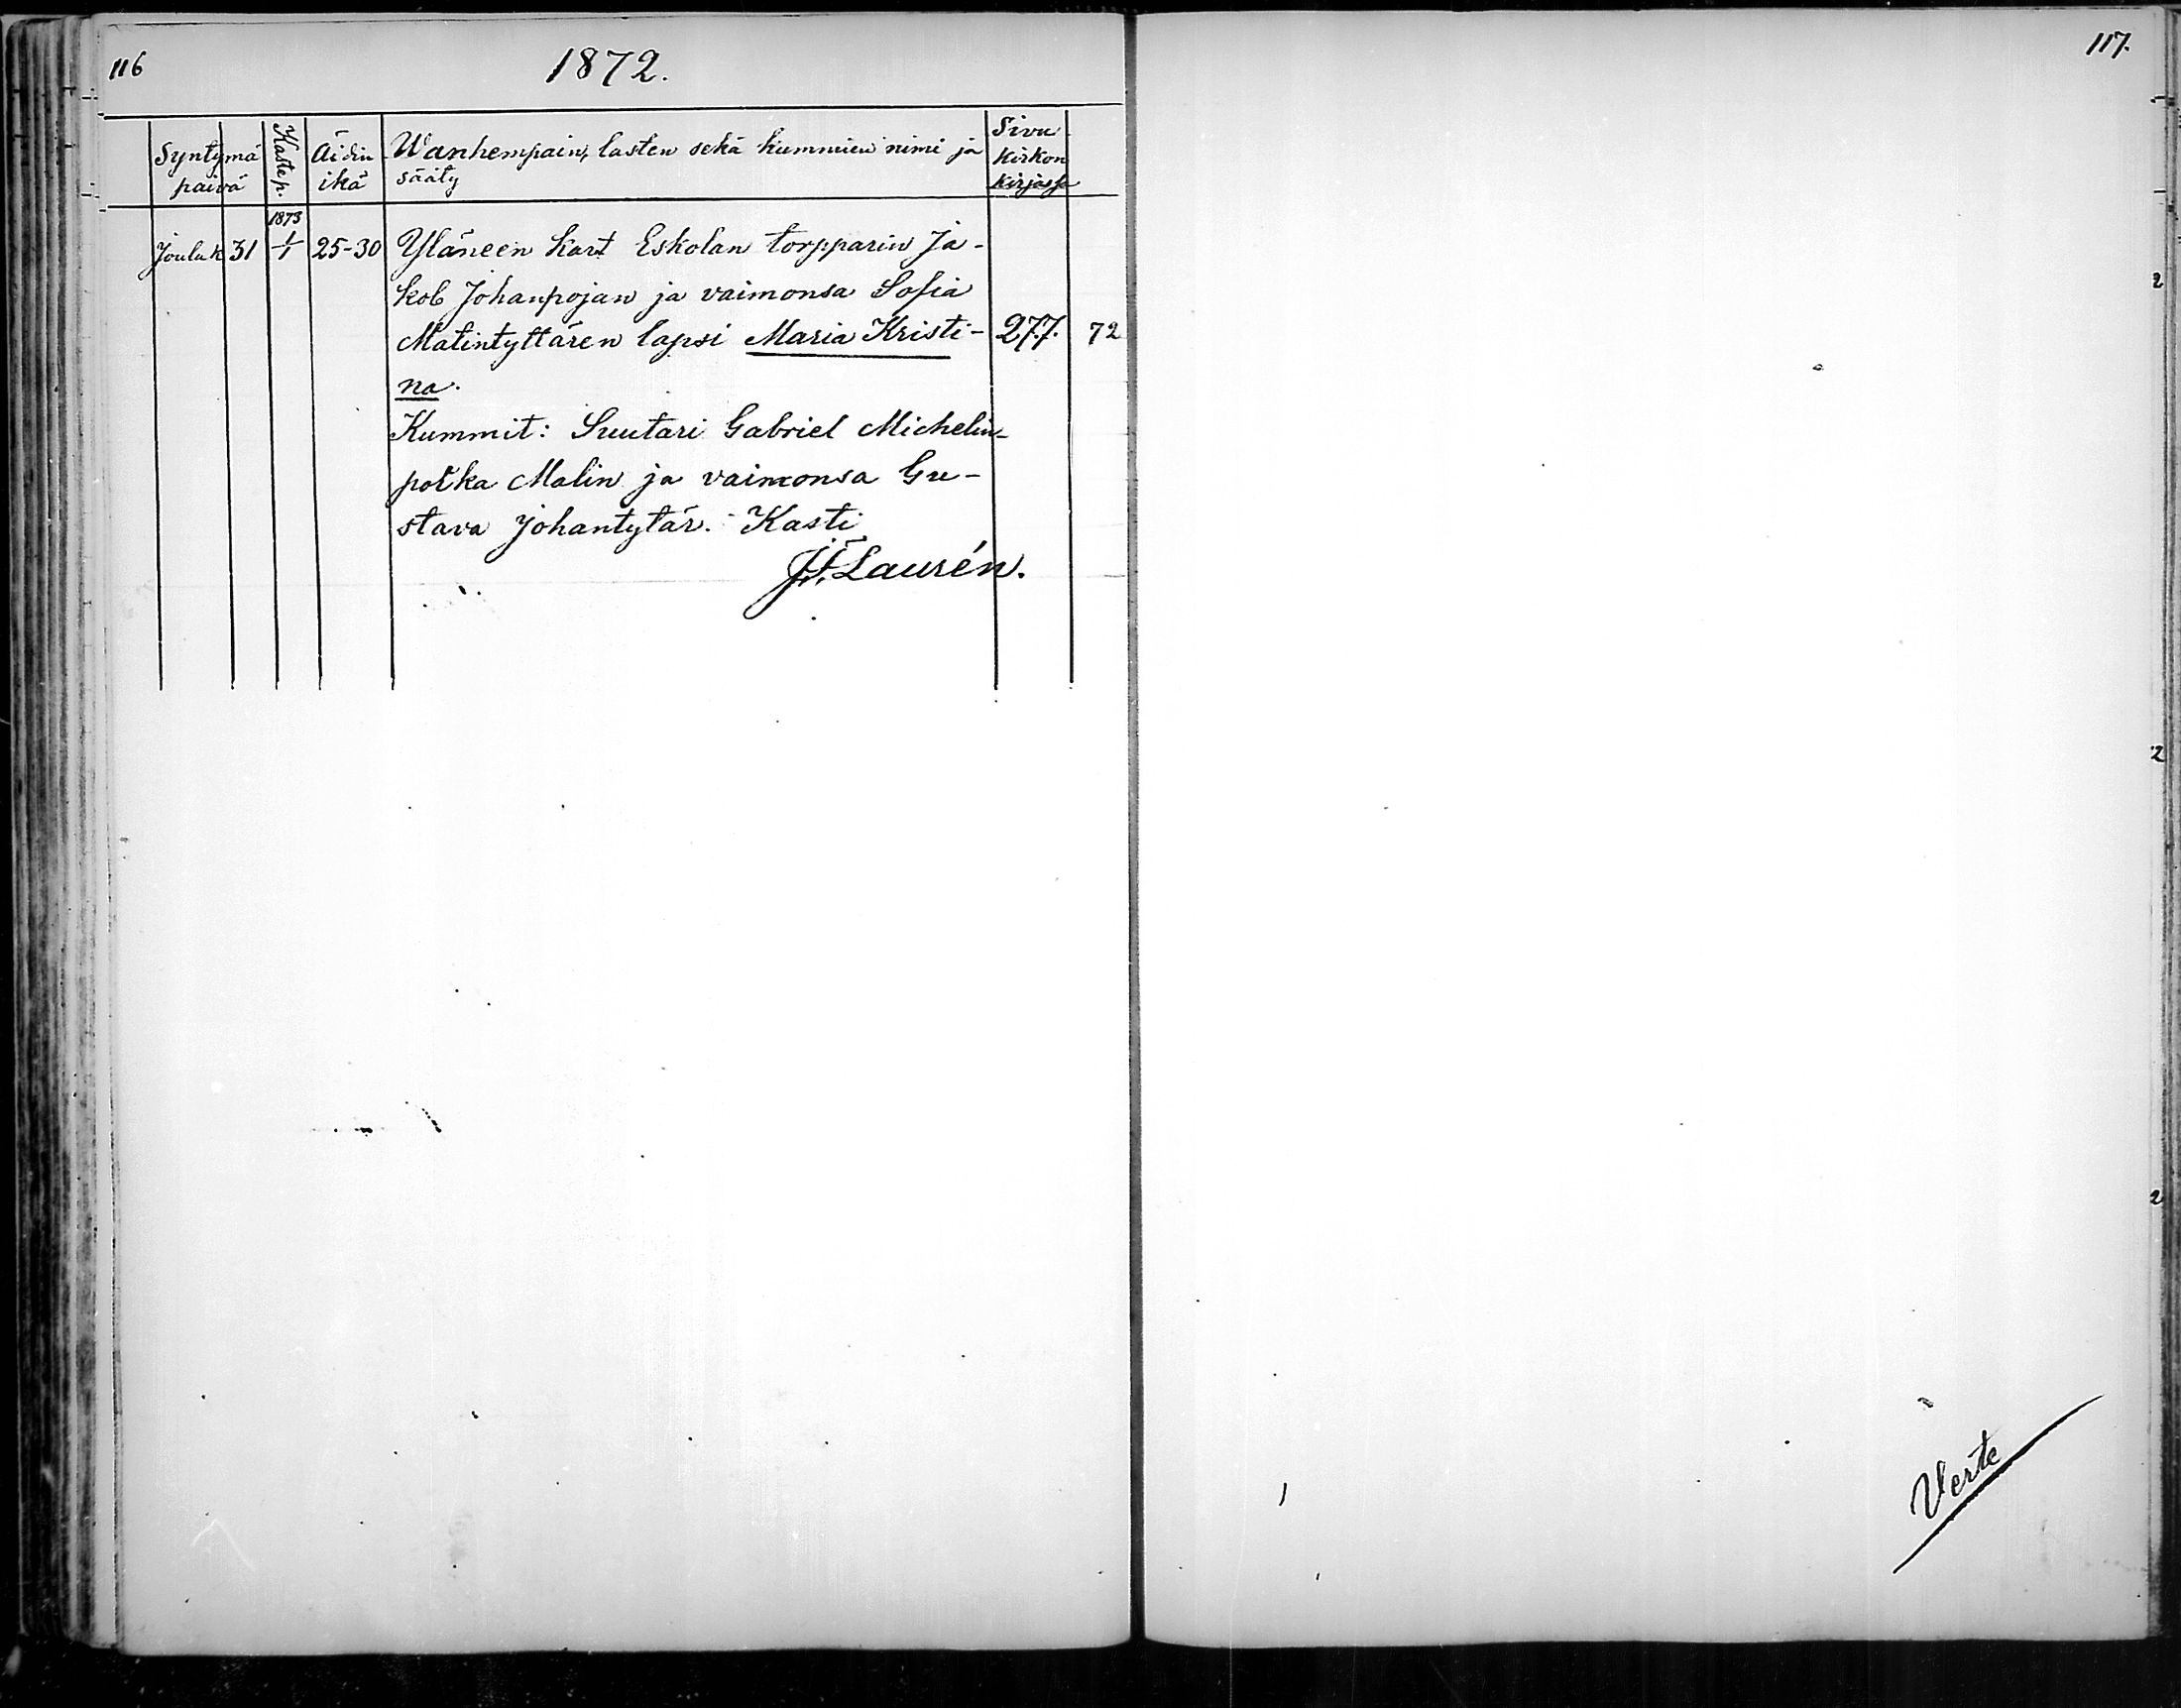 116
1872.
Syntymä päivä | Kastep. | Äidin ikä | Wanhempain, lasten sekä kummien nimi ja sääty | Sivu kirkon kirjassa
1873
Jouluk 31 1/1 25-30 Yläneen kart Eskolan torpparin Ja-
kob Johanpojan ja vaimonsa Sofia
Matintyttären lapsi Maria Kristi- 277. 72
na.
Kummit: Suutari Gabriel Michelin-
poika Malin ja vaimonsa Gu-
stava Johantytär. Kasti
Laurén.
117.
2
2
2
Verte